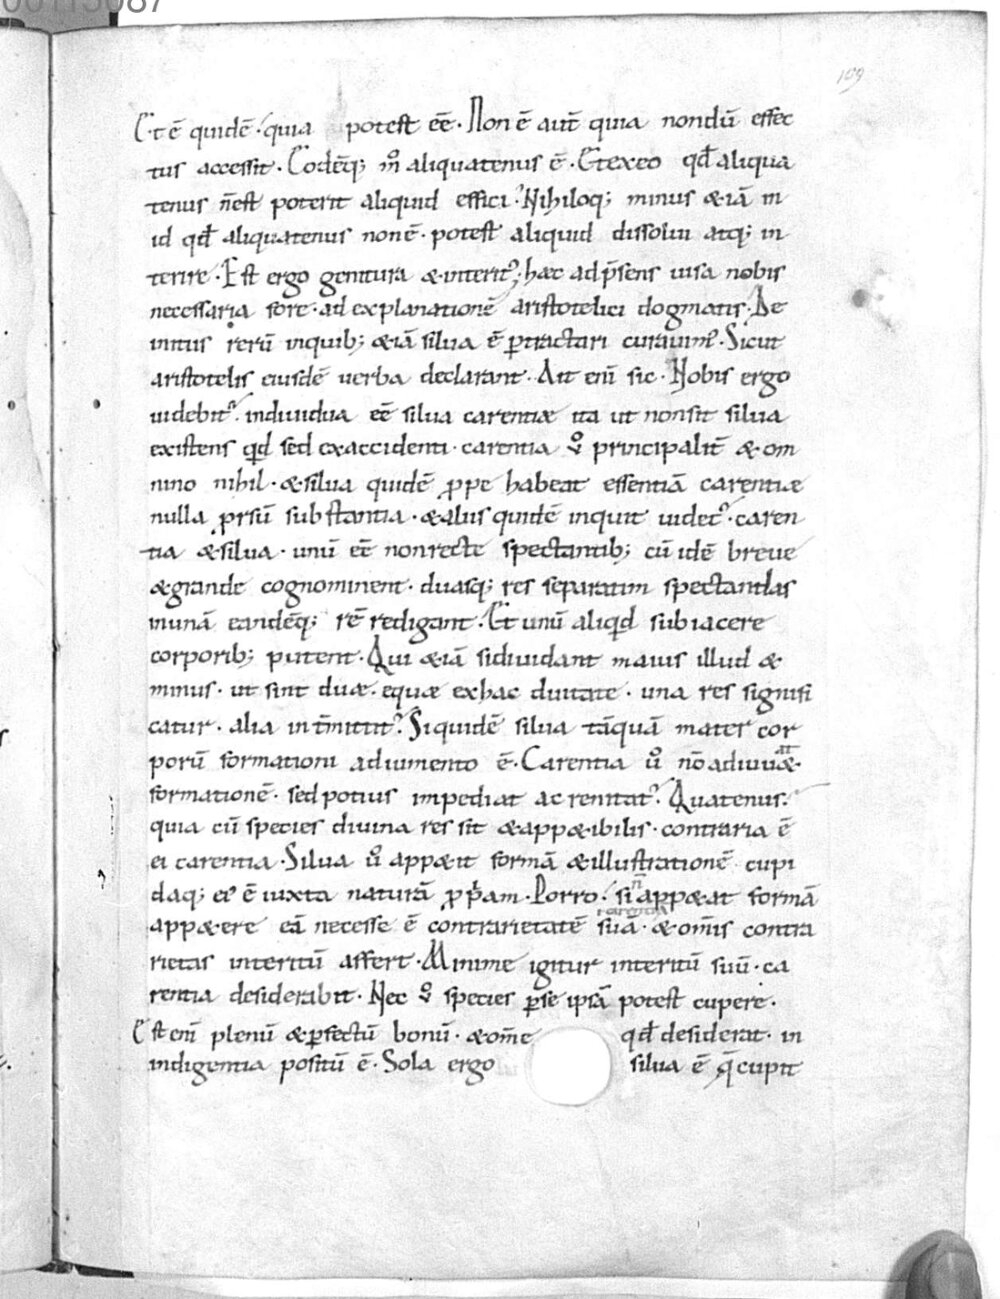 00113087
109
Et ē quidē quia potest eē. Non ē aut̄ quia nondū effec
tus accessit. Eodēq; m̊ aliquatenus ē. Et ex eo qd̄ aliqua
tenus n̄ est poterit aliquid effici. Nihiloq; minus &iā in
id qd̄ aliquatenus non ē. potest aliquid dissolui atq; in
terire. Est ergo genitura & interit᾿. hæc ad p̄sens uisa nobis
necessaria fore. ad explanationē aristotelici dogmatis. De
initiis rerū inquib; &iā silua ē ꝑtractari curauim᾿. Sicut
aristotelis eiusdē uerba declarant. Ait eni̅ sic. Nobis ergo
uidebit᾿. indiuidua eē silua carentiæ ita ut non sit silua
existens qd sed ex accidenti. carentia ů principalit̄ & om
nino nihil. & silua quidē ꝓpe habeat essentiā carentiæ
nulla prsū substantia. & aliis quidē inquit uidet᾿. caren
tia & silua. unū eē non recte spectantib; cū idē breue
& grande cognominent. duasq; res separatim spectandas
in unā eandēq; rē redigant. Et unū aliqd subiacere
corporib; putent. Qui &iā si diuidant maius illud &
minus. ut sint duæ. equæ ex hac duitate. una res signifi
catur. alia int̄mittit᾿. Siquidē silua tāquā mater cor
porū formationi adiumento ē. Carentia u̅ nō adiuuæt
formationē. sed potius impediat ac renitat᾿. Quatenus.
quia cū species diuina res sit & app&ibilis. contraria ē
ei carentia. Silua u̅ app&it formā & illustrationē cupi
daq; ei᾿ ē iuxta naturā ꝓp̄am. Porro si n̄ app&at formā
carentia
app&ere eā necesse ē contrarietatē suā. & om̄is contra
rietas interitū affert. Minime igitur interitū suū. ca
rentia desiderabit. Nec ů species ꝑse ipsā potest cupere.
Est eni̅ plenū & ꝑfectū bonū. & om̄e qd̄ desiderat. in
indigentia positū ē. Sola ergo silua ē q̄ cupit